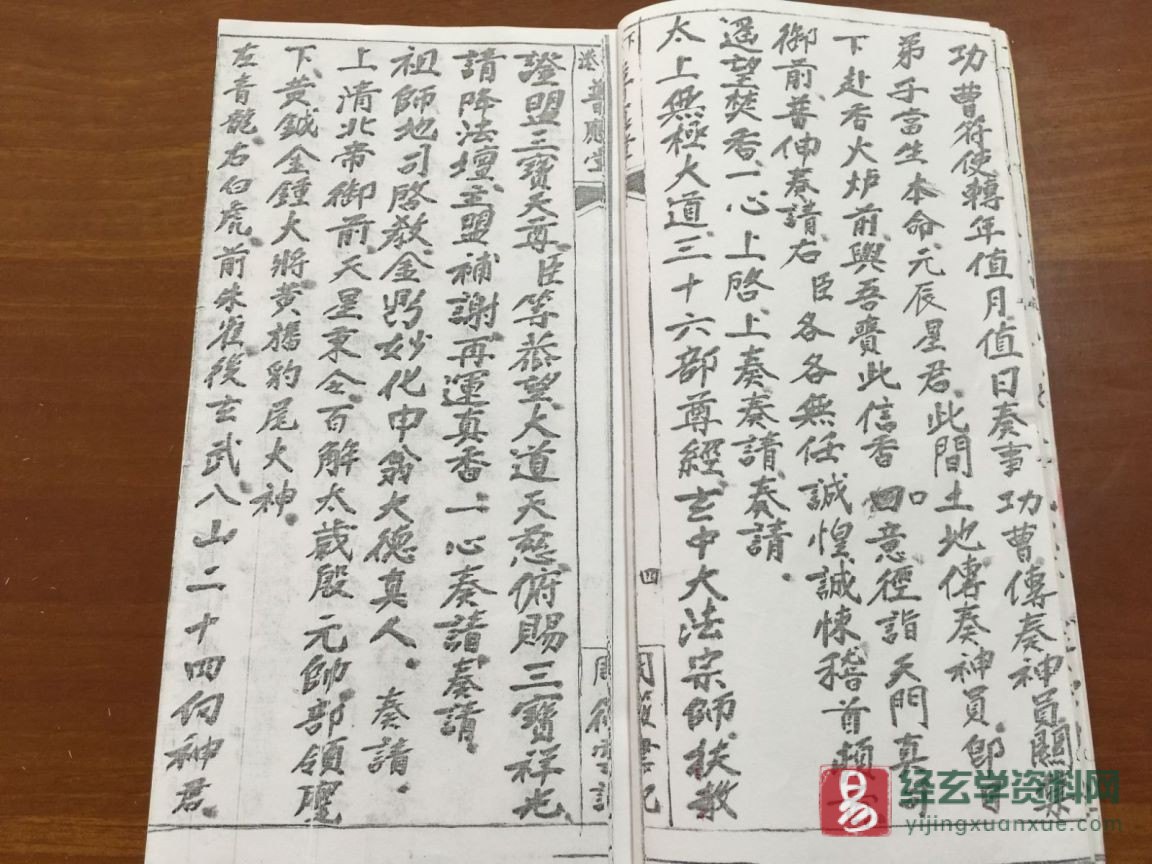 功曹符使轉年值月值日奏事功曹傳奏神員關
弟子當生本命元辰星君此間土地傳奏神員即
下赴香火炉前與吾賫此信香口意徑詣天門真
御前普伸奏請右臣各各無任誠惶誠悚稽首頓
遥望焚香一心上啓上奏奏請奏請
太上無極大道三十六部尊經玄中大法宗師扶教
四
普應堂
證盟三寶天尊臣等恭望大道天慈俯賜三寶祥光
請降法壇主盟補謝再運真香一心奏請奏請
祖師地司啓教金鼎妙化申翁大德真人奏請
上清北帝御前天星秉令百解太歲殷元帥部領聖
下黄鉞金鍾大將黄旛豹尾大神
左青龍右白虎前朱雀後玄武八山二十四向神君
易
经玄学资料网
yijingxuanxue.com